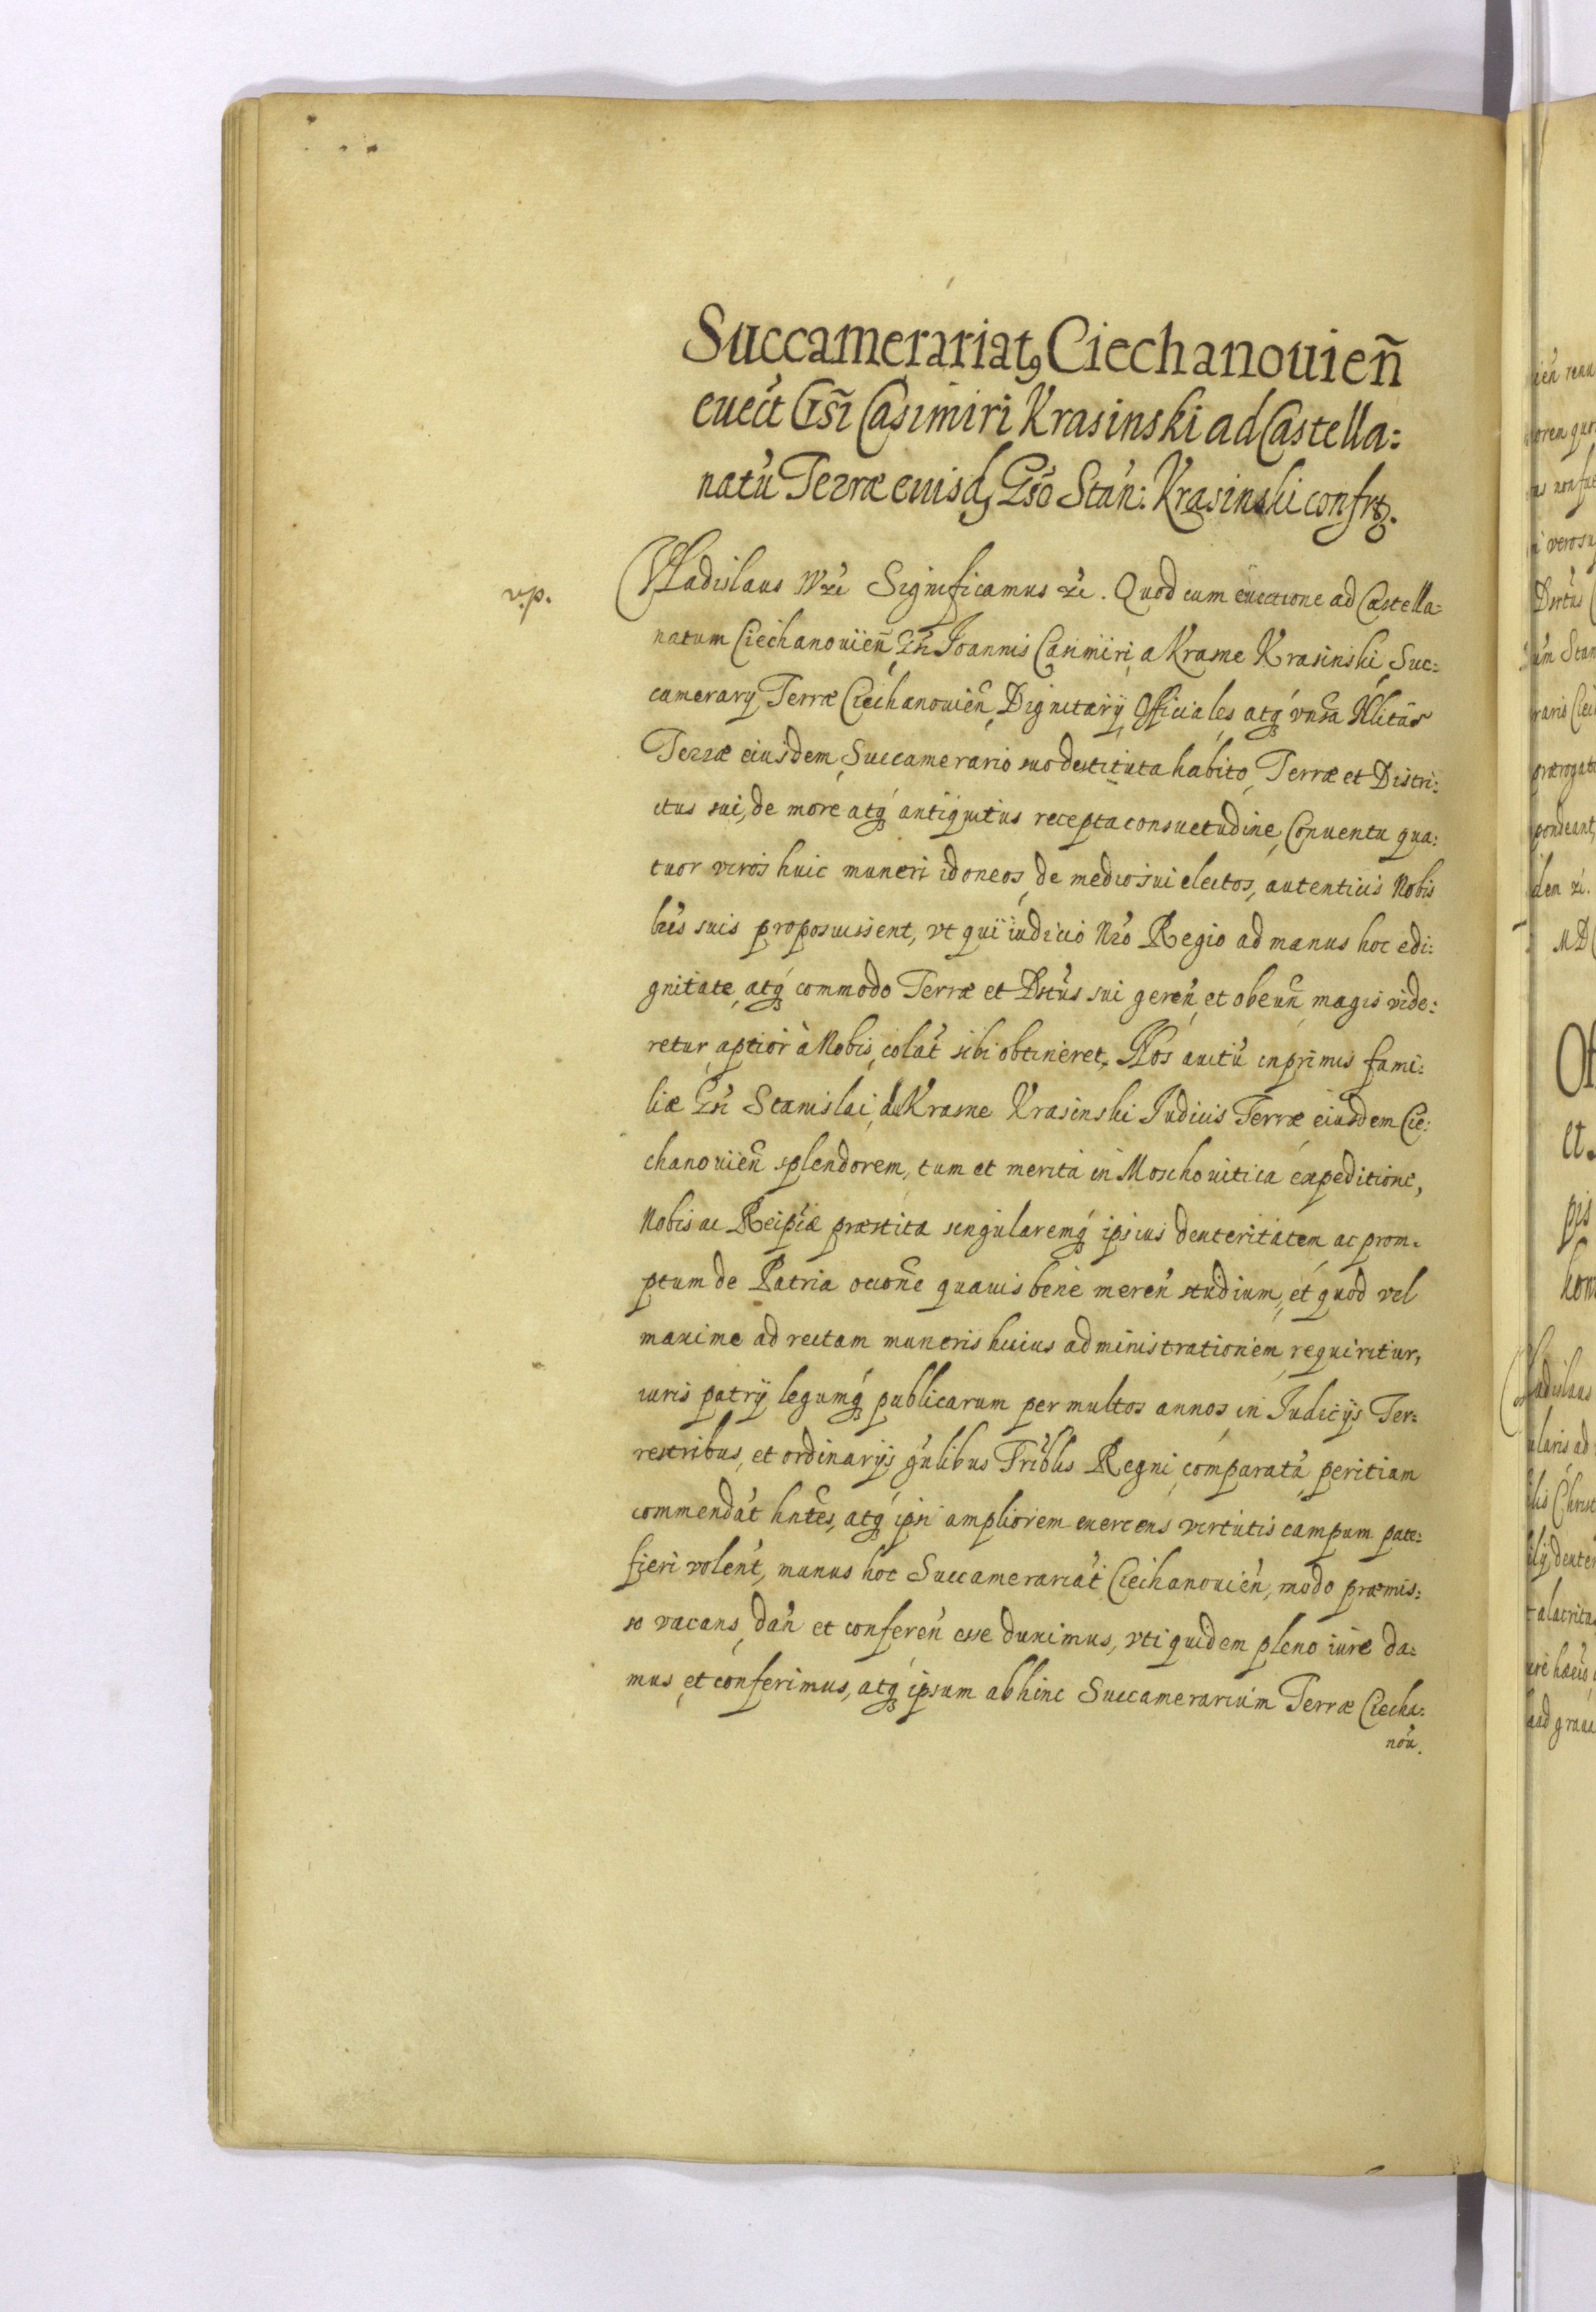 Succamerariatꝯ Ciechanouien̄
euect Gsi Casimiri Krasinski ad Castella:
natu Terræ euisd Gso Stan: Krasinski confrt.
vip.
Vladislaus IV &c Significamus &c. Quod cum euectione ad Castella:
natum Ciechanouien̄ Gsi Joannis Casimiri a Krasne Krasinski Suc:
camerarij Terræ Ciechanouien̄, Dignitarij Officiales atq vnsa Nlitas
Terræ eiusdem, Succamerario suo destituta habito, Terræ et Distri:
ctus sui, de more atq antiquitus recepta consuetudine, Conuentu qua:
tuor viros huic muneri idoneos, de medio sui electos, autenticis Nobis
lres suis proposuissent, vt qui iudicio Nro Regio ad manus hoc e di:
gnitate, atq commodo Terræ et Dsctus sui geren̄, et obeun̄ magis vide:
retur aptior à Nobis, colat sibi obtineret, Nos auitu inprimis fami:
liæ Gsi Stanislai, de Krasne Krasinski Judicis Terræ eiusdem Cie:
chanouien̄ splendorem, tum et merita in Moschouitica expeditione,
Nobis ac Reipiæ præstita singularemq ipsius dexteritatem ac prom:
ptum de Patria occone quauis bene meren̄ studium, et quod vel
maxime ad rectam muneris huius administrationem requiritur,
iuris patrij legumq publicarum per multos annos in Judicijs Ter:
restribus, et ordinarijs gnlibus Triblis Regni, comparata peritiam
commendat hntes, atq ipsi ampliorem exercens virtutis campum pate:
fieri volent, munus hoc Succamerariat Ciechanouien̄, modo præmis:
so vacans, dan̄ et conferen̄ esse duximus, vti quidem pleno iure da:
mus et conferimus, atq ipsum abhinc Succamerarium Terræ Ciecha:
nou.